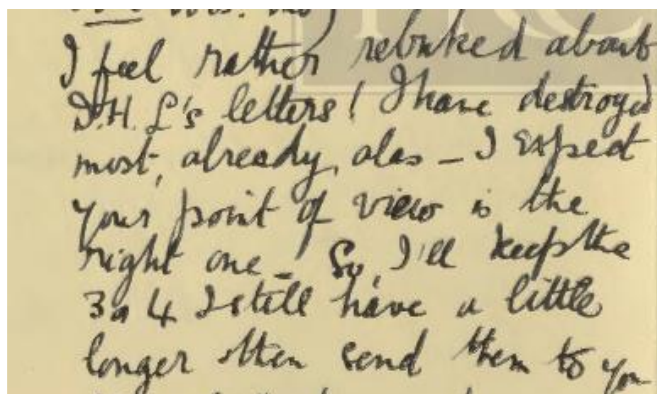 I feel rather rebuked about
D.H.L's letters! I have destroyed
most, already, alas – I expect
your point of view is the
right one – So, I'll keep the
3 or 4 I still have a little
longer then send them to you